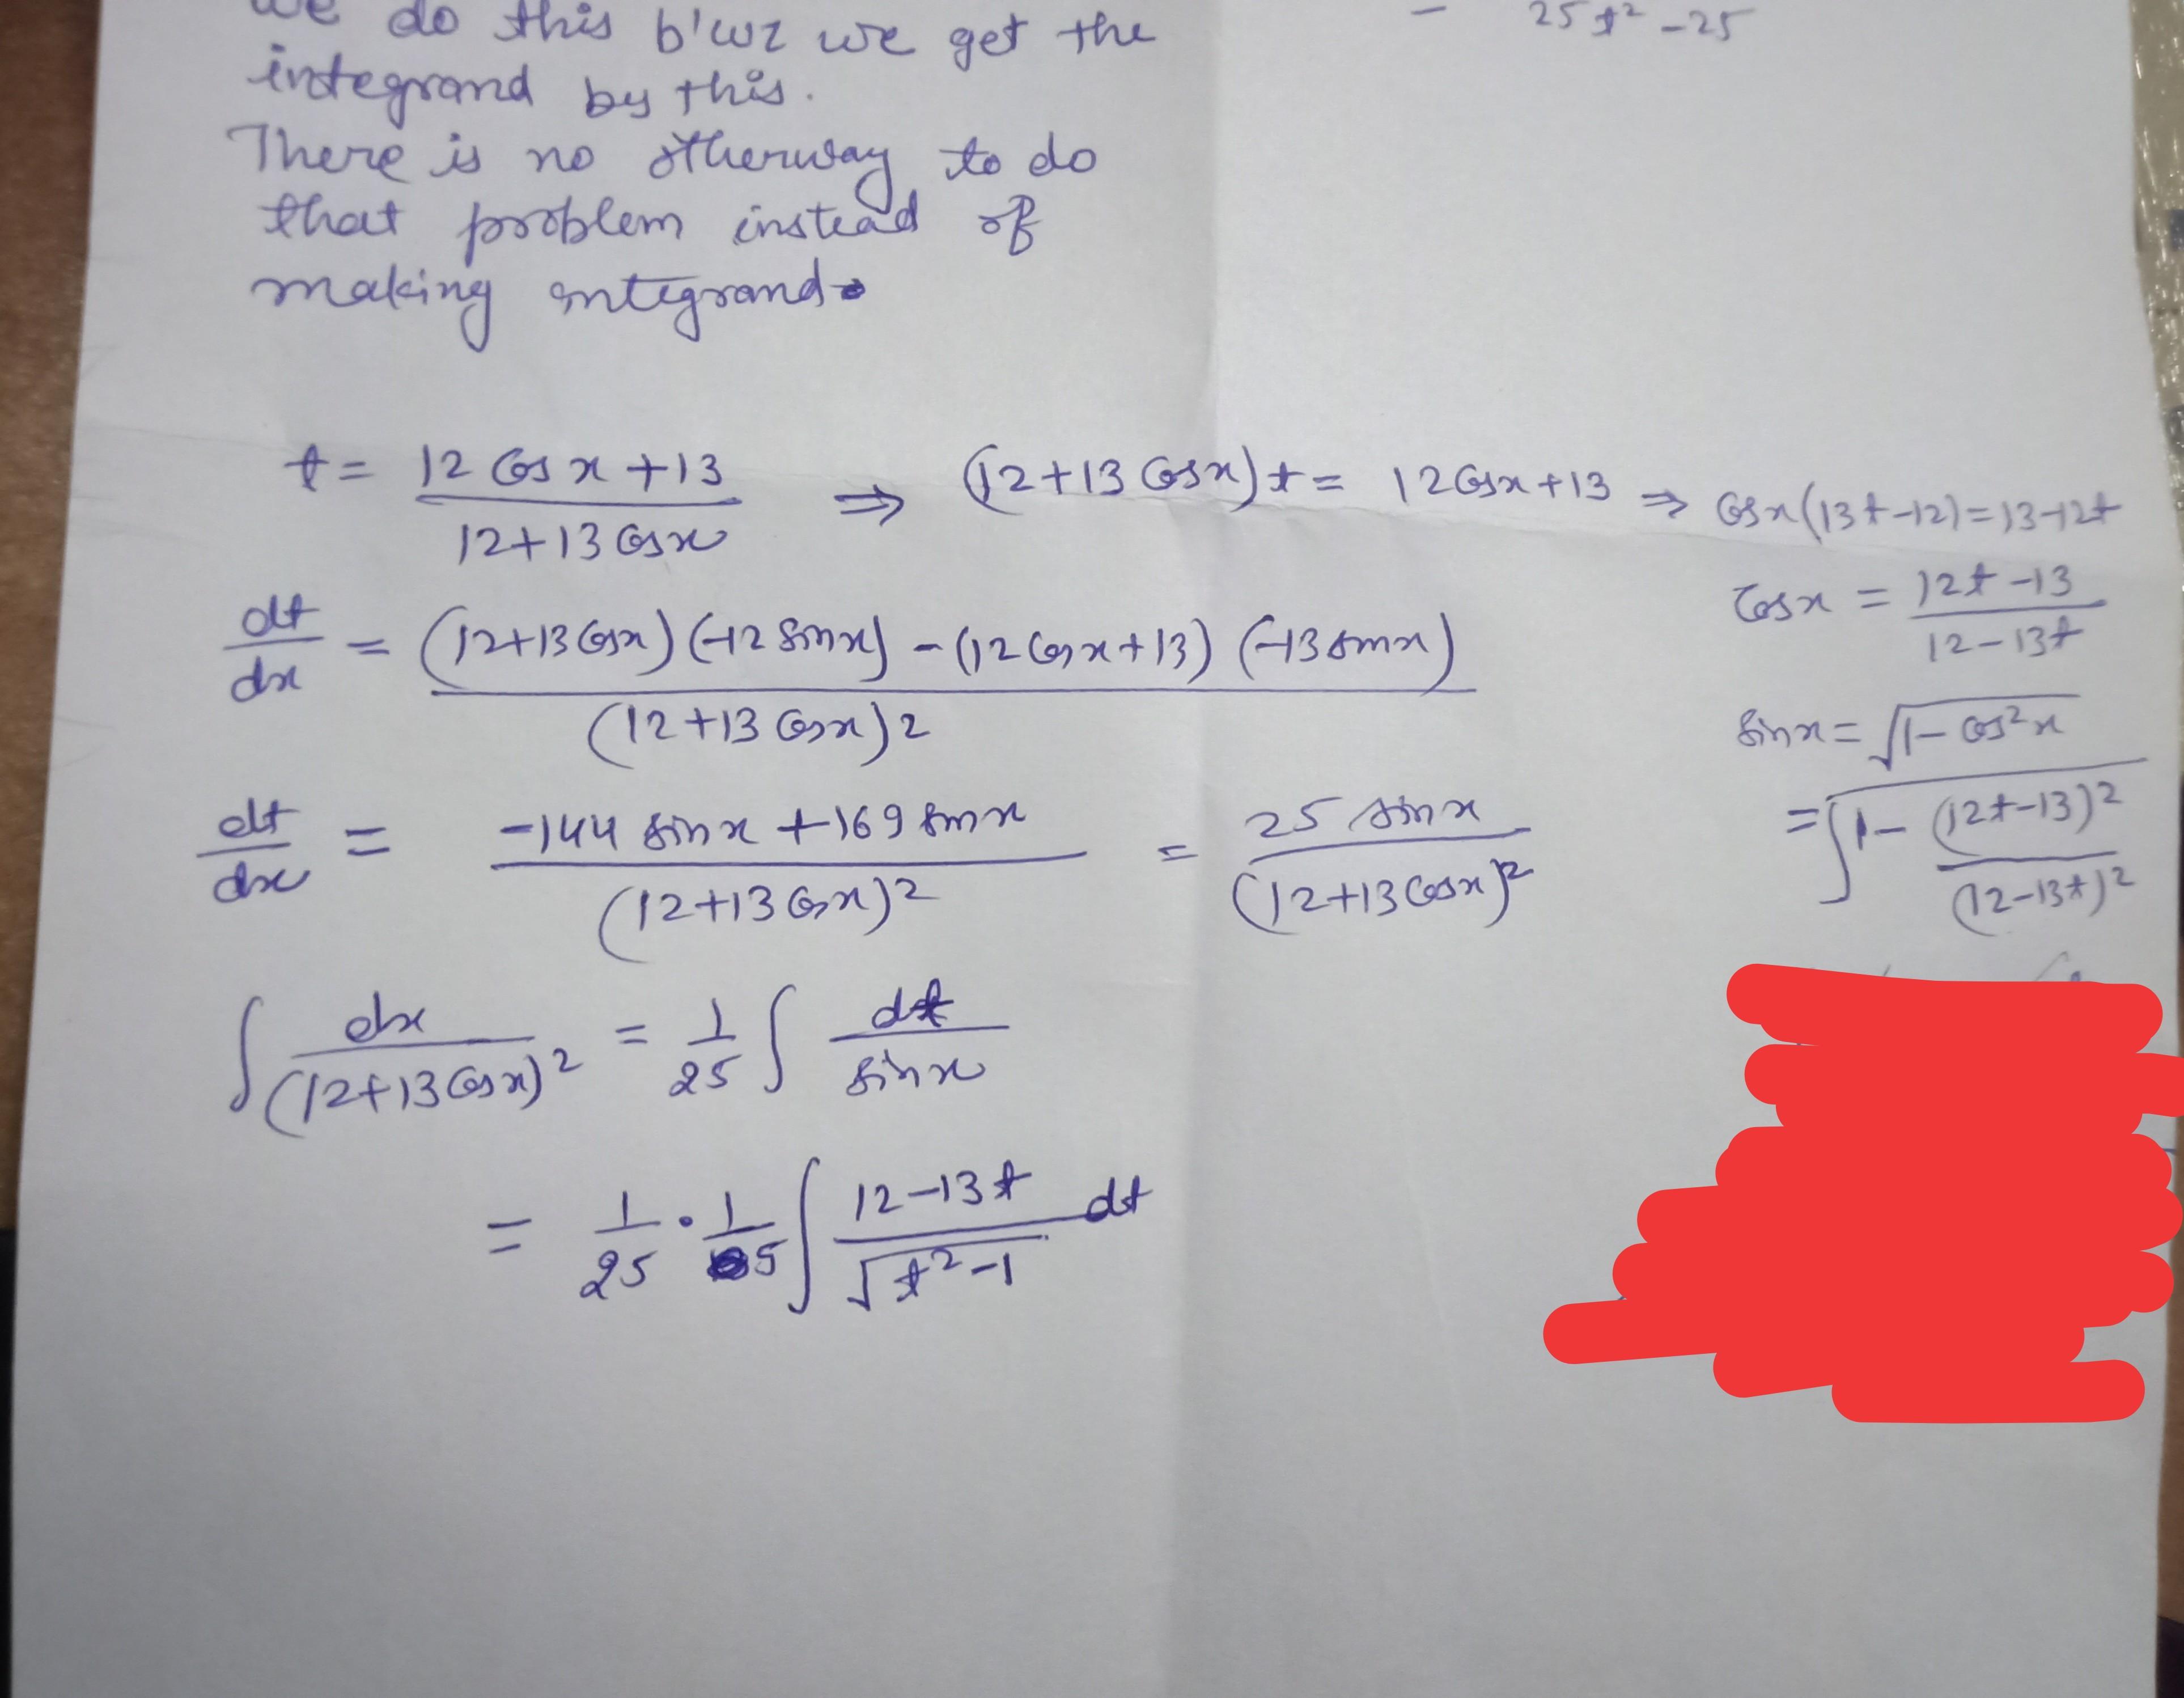 we do this b'wz we get the
integrand by this.
There is no otherway to do
that problem instead of
making integrand.
- 25t² - 25
t = 12 Cos x + 13 / 12 + 13 Cos x ⇒ (12 + 13 Cos x) t = 12 Cos x + 13 ⇒ Cos x (13t - 12) = 13 - 12t
Cos x = 12t - 13 / 12 - 13t
dt/dx = (12 + 13 Cos x) (-12 Sin x) - (12 Cos x + 13) (-13 sin x) / (12 + 13 Cos x)2
Sin x = √1 - cos² x
= √1 - (12t - 13)² / (12 - 13t)²
dt/dx = -144 sin x + 169 sin x / (12 + 13 Cos x)2 = 25 sin x / (12 + 13 Cos x)2
∫ dx / (12 + 13 Cos x)2 = 1/25 ∫ dt / sin x
= 1/25 · 1/5 ∫ 12 - 13t / √t² - 1 dt